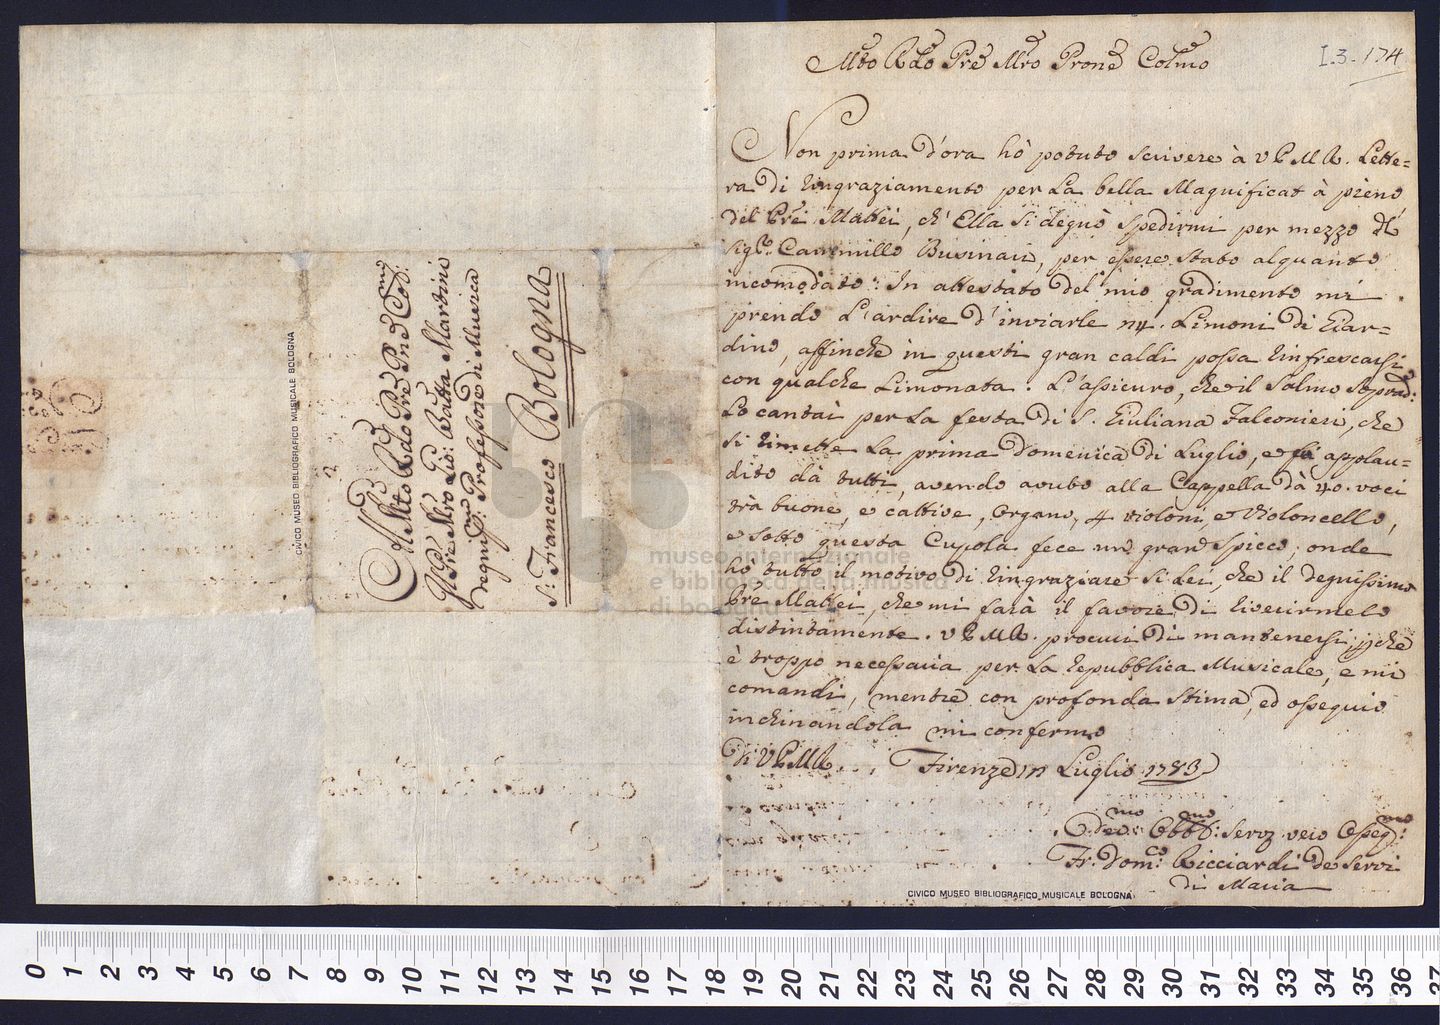 Mto Rdo Pre Mro Prone Colmo
I.3.174
Non prima d'ora hò potuto scrivere à V P M R. Lette=
ra di ringraziamento per La bella Magnificat à pieno
del Pre Mattei, ch' Ella si degnò spedirmi per mezzo del
Sigre Cammillo Businari, per essere stato alquanto
incomodato: In attestato del mio gradimento mi
prendo L'ardire d'inviarle n4. Limoni di Giar=
dino, affinche in questi gran caldi possa rinfrescarsi
con qualche Limonata. L'assicuro, che il Salmo soprad:o
Lo cantai per La festa di S. Giuliana Falconieri, che
si rimette La prima Domenica di Luglio, e fù applau=
dito dà tutti, avendo avuto alla Cappella dà 40. voci
trà buone, e cattive, Organo, 4 violoni, e Violoncello,
e sotto questa Cupola fece un gran spicco; onde
hò tutto il motivo di ringraziare si Lei, che il degnissimo
Pre Mattei, che mi farà il favore di riverirmelo
distintamente. V P M R. procuri di mantenersi, che
è troppo necessaria per La repubblica Musicale, e mi
comandi, mentre con profonda stima, ed ossequio
inchinandola mi confermo
di V P M R. Firenze Luglio 1783
Devmo Obblmo: Servr vero Ossegmo:
Fr. Domco: Ricciardi de Servi
di Maria
Al Mto Rdo Pre Pne Colmo:
Il Pre Mro Gio: Batta Martini
degnmo: Professore di Musica
S: Francesco Bologna
CIVICO MUSEO BIBLIOGRAFICO MUSICALE BOLOGNA
CIVICO MUSEO BIBLIOGRAFICO MUSICALE BOLOGNA
museo internazionale
e biblioteca della musica
di bologna
0 1 2 3 4 5 6 7 8 9 10 11 12 13 14 15 16 17 18 19 20 21 22 23 24 25 26 27 28 29 30 31 32 33 34 35 36 37